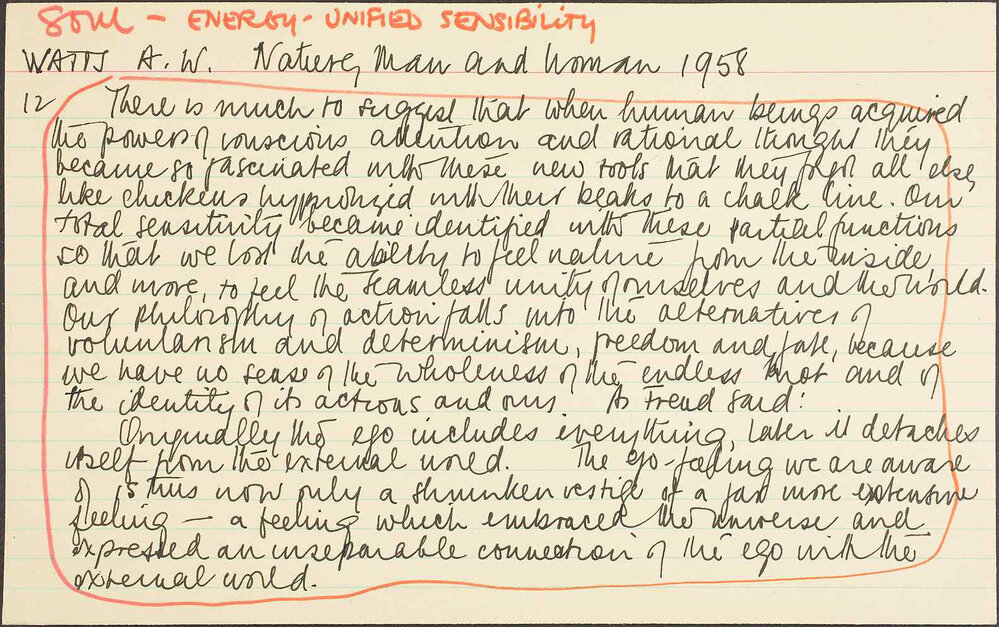 Soul - ENERGY - UNIFIED SENSIBILITY
WATTS A.W. Nature, Man and Woman 1958
12 There is much to suggest that when human beings acquired
the powers of conscious attention and rational thought they
became so fascinated with these new tools that they forgot all else,
like chickens hypnotized with their beaks to a chalk line. Our
total sensitivity became identified with these partial functions
so that we lost the ability to feel nature from the inside,
and more, to feel the seamless unity of ourselves and the world.
Our philosophy of action falls into the alternatives of
voluntarism and determinism, freedom and fate, because
we have no sense of the wholeness of the endless knot and of
the identity of its actions and ours. As Freud said:
Originally the ego includes everything, later it detaches
itself from the external world. The ego-feeling we are aware
of is thus now only a shrunken vestige of a far more extensive
feeling — a feeling which embraced the universe and
expressed an inseparable connection of the ego with the
external world.